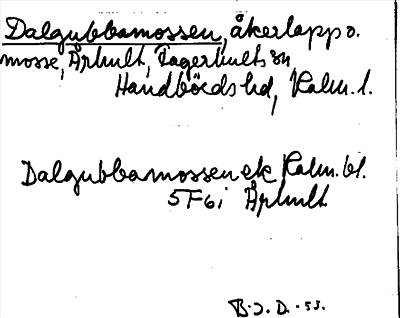 Dalgubbamossen, åkerlapp o.
mosse, Århult, Fagerhults sn
Handbörds hd, Kalm. l.
Dalgubbamossen ek Kalm. bl.
5F6i Århult
B. J. D. -53.